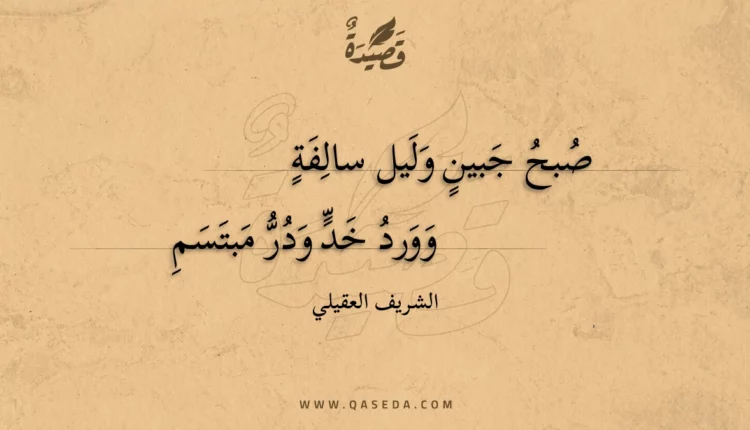 قَصِيْدَةٌ
صُبحُ جَبينٍ وَلَيل سالِفَةٍ
وَوَردُ خَدٍّ وَدُرُّ مَبتَسَمِ
الشريف العقيلي
WWW.QASEDA.COM